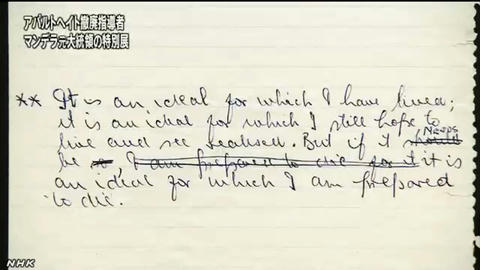 アパルトヘイト撤廃指導者
マンデラ元大統領の特別展
** It is an ideal for which I have lived;
it is an ideal for which I still hope to
live and see realised. But if it should Needs
be so, I am prepared to die for it it is
an ideal for which I am prepared
to die.
NHK